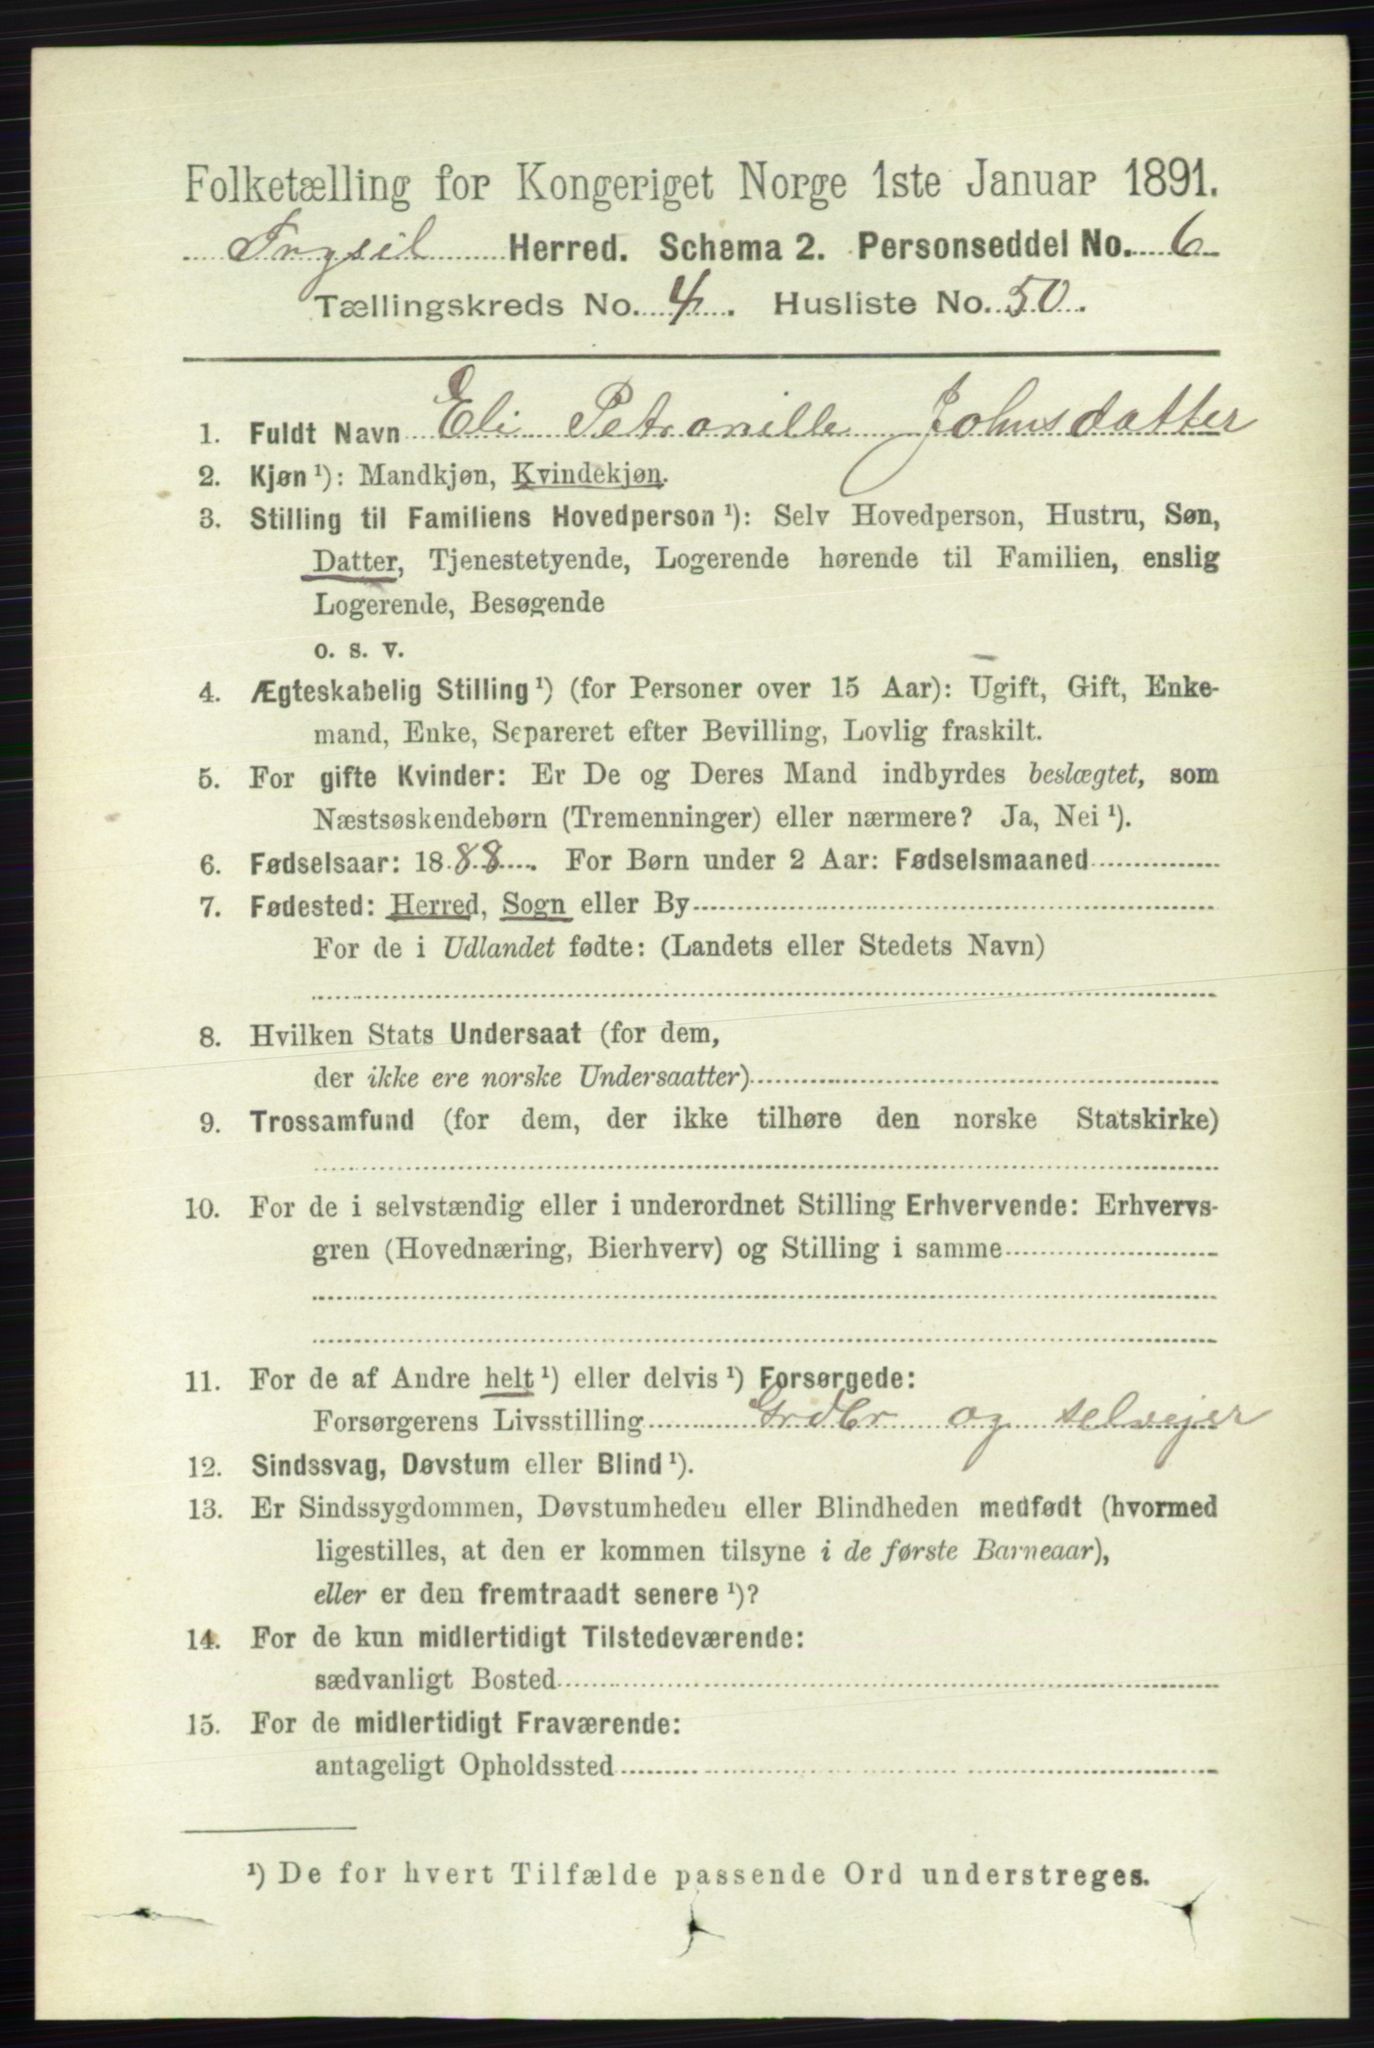 Folketælling for Kongeriget Norge 1ste Januar 1891.
Trysil Herred. Schema 2. Personseddel No. 6
Tællingskreds No. 4. Husliste No. 50.
1. Fuldt Navn Eli Petronille Johnsdatter
2. Kjøn ¹): Mandkjøn, Kvindekjøn.
3. Stilling til Familiens Hovedperson ¹): Selv Hovedperson, Hustru, Søn,
Datter, Tjenestetyende, Logerende hørende til Familien, enslig
Logerende, Besøgende
o. s. v.
4. Ægteskabelig Stilling ¹) (for Personer over 15 Aar): Ugift, Gift, Enke-
mand, Enke, Separeret efter Bevilling, Lovlig fraskilt.
5. For gifte Kvinder: Er De og Deres Mand indbyrdes beslægtet, som
Næstsøskendebørn (Tremenninger) eller nærmere? Ja, Nei ¹).
6. Fødselsaar: 1888. For Børn under 2 Aar: Fødselsmaaned
7. Fødested: Herred, Sogn eller By
For de i Udlandet fødte: (Landets eller Stedets Navn)
8. Hvilken Stats Undersaat (for dem,
der ikke ere norske Undersaatter)
9. Trossamfund (for dem, der ikke tilhøre den norske Statskirke)
10. For de i selvstændig eller i underordnet Stilling Erhvervende: Erhvervs-
gren (Hovednæring, Bierhverv) og Stilling i samme
11. For de af Andre helt ¹) eller delvis ¹) Forsørgede:
Forsørgerens Livsstilling Grdbr og selvejer
12. Sindssvag, Døvstum eller Blind ¹).
13. Er Sindssygdommen, Døvstumheden eller Blindheden medfødt (hvormed
ligestilles, at den er kommen tilsyne i de første Barneaar),
eller er den fremtraadt senere ¹)?
14. For de kun midlertidigt Tilstedeværende:
sædvanligt Bosted
15. For de midlertidigt Fraværende:
antageligt Opholdssted
¹) De for hvert Tilfælde passende Ord understreges.